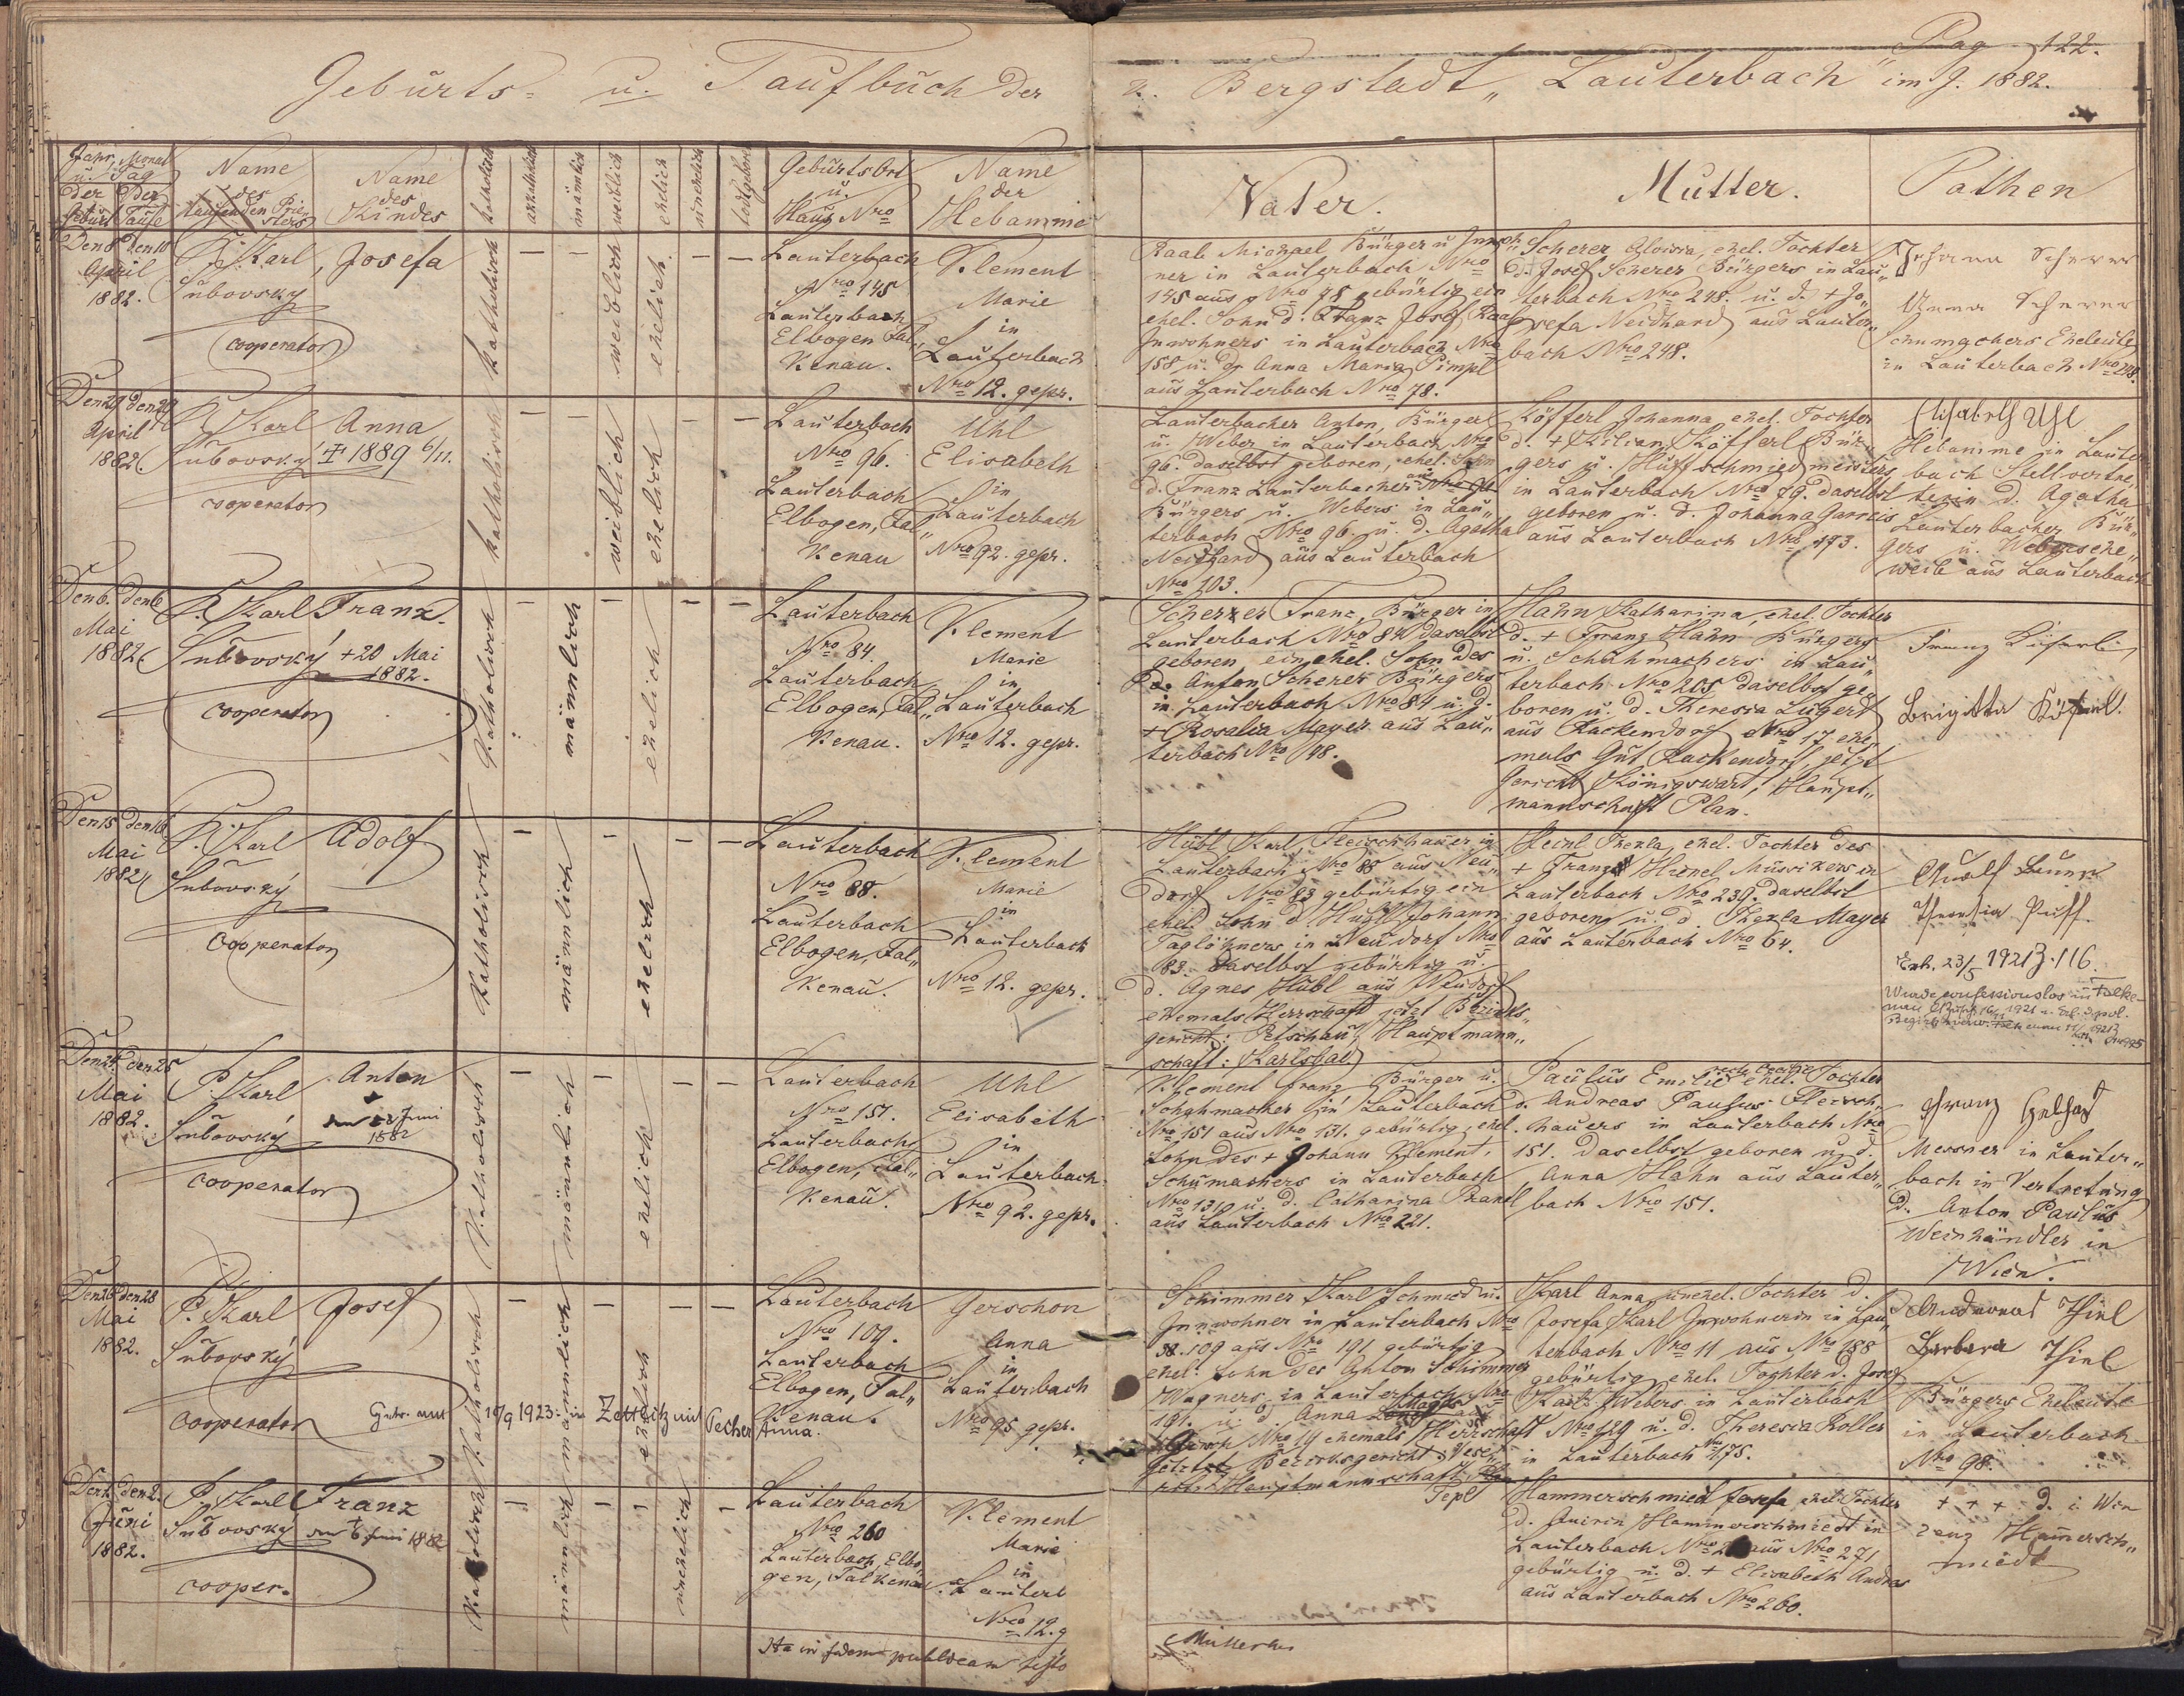 Pag 122.
Geburts= u. Taufbuch der k. Bergstadt „Lauterbach" im J. 1882.
Jahr, Monat
u. Tag
der Geburt
der Taufe
Name
des
taufenden Prie-
sters
Name
des
Kindes
katholisch
akatholisch
männlich
weiblich
ehelich
unehelich
todtgeboren
Geburts Ort
u.
Haus Nro
Name
der
Hebamme
Vater.
Mutter.
Pathen
Den 8 den 10
April
1882.
P. Karl
Subovský
cooperator
Josefa
katholisch
—
—
weiblich
ehelich
—
—
Lauterbach
Nro 145
Lauterbach
Elbogen Fal„
kenau.
Klement
Marie
in
Lauterbach
Nro 12. gepr.
Raab Michael Bürger u Inwoh„
ner in Lauterbach Nro
145 aus Nro 78 gebürtig ein
ehel. Sohn d. Franz Josef Raab
Inwohners in Lauterbach Nro
158 u. d. Anna Maria Pimpl
aus Lauterbach Nro 78.
Scherer Aloisia, ehel. Tochter
d. Josef Scherer Bürgers in Lau„
terbach Nro 248. u. d. + Jo„
sefa Neidhard aus Lauter„
bach Nro 248.
Johann Scherer
Anna Scherer
Schumachers Eheleute
in Lauterbach Nro 248.
Den 29 den 29
April
1882.
P. Karl
Subovský
cooperator
Anna
+ 1889 6/11.
katholisch
—
—
weiblich
ehelich
—
—
Lauterbach
Nro 96.
Lauterbach
Elbogen, Fal„
kenau
Uhl
Elisabeth
in
Lauterbach
Nro 92. gepr.
Lauterbacher Anton, Bürger
u. Weber in Lauterbach Nro
96. daselbst geboren, ehel. Sohn
d. Franz Lauterbacher aus Nro 96
Bürgers u. Webers in Lau„
terbach Nro 96. u. d. Agatha
Neidhard aus Lauterbach
Nro 103.
Köfferl Johanna ehel. Tochter
d. + Kilian Köfferl Bür„
gers u. Huffschmiedmeisters
in Lauterbach Nro 79. daselbst
geboren u. d. Johanna Garreis
aus Lauterbach Nro 193.
Elisabeth Uhl
Hebamme in Lauter
bach Stellvertre„
terin d. Agatha
Lauterbacher Bür„
gers u. Webersehe„
weib aus Lauterbach
Den 6. den 6
Mai
1882.
P. Karl
Subovský
cooperator
Franz.
+ 20 Mai
1882.
Katholisch
—
männlich
—
ehelich
—
—
Lauterbach
Nro 84.
Lauterbach
Elbogen, Fal„
kenau.
Klement
Marie
in
Lauterbach
Nro 12. gepr.
Scherer Franz, Bürger in
Lauterbach Nro 84 daselbst
geboren, ein ehel. Sohn des
Anton Scherer Bürgers
in Lauterbach Nro 84 u. d.
+ Rosalia Mayer aus Lau„
terbach Nro 48.
Hahn Katharina, ehel. Tochter
d. + Franz Hahn Bürgers
u. Schuhmachers in Lau„
terbach Nro 205 daselbst ge„
boren u. d. Theresia Lugert
aus Rackendorf Nro 17 ehe„
mals Gut Rackendorf, jetzt
Gericht Königswart, Haupt„
mannschaft Plan.
Franz
Brigitta
Den 15 den 16
Mai
1882
P. Karl
Subovský
Cooperator
Adolf
Katholisch
—
männlich
—
ehelich
—
—
Lauterbach
Nro 88.
Lauterbach
Elbogen, Fal„
kenau.
Klement
Marie
in
Lauterbach
Nro 12. gepr.
Hübl Karl, Fleischhauer in
Lauterbach Nro 88 aus Neu„
dorf Nro 83 gebürtig ein
ehel. Sohn d. Hübl Johann
Taglöhners in Neudorf Nro
83. daselbst gebürtig u.
d. Agnes Hübl aus Neudorf
ehemals Herrschaft jetzt Bezirks„
gericht: Petschau, Hauptmann„
schaft: Karlsbad
Heinl Thekla, ehel. Tochter des
+ Franz Heinl Musikers in
Lauterbach Nro 239. daselbst
geboren u. d. Thekla Mayer
aus Lauterbach Nro 64.
Adolf
Theresia Puff.
Erh. 23/5 1921 Z. 116.
Wurde confessionslos in Falke-
nau
Den 24 den 25
Mai
1882.
P. Karl
Subovský
cooperator
Anton
+
Juni
1882
Katholisch
—
männlich
—
ehelich
—
—
Lauterbach
Nro 151.
Lauterbach
Elbogen, Fal„
kenau.
Uhl
Elisabeth
in
Lauterbach
Nro 92. gepr.
Klement Franz Bürger u.
Schuhmacher in Lauterbach
Nro 151 aus Nro 131. gebürtig, ehel.
Sohn des + Johann Klement,
Schumachers in Lauterbach
Nro 131 u. d. Catharina Brandl
aus Lauterbach Nro 221.
Paulus Emilie ehel. Tochter
d. Andreas Paulus Fleisch„
hauers in Lauterbach Nro
151. daselbst geboren u. d.
Anna Hahn aus Lauter„
bach Nro 151.
Franz
Messner in Lauter„
bach in Vertretung
d. Anton Paulus
Weinhändler in
Wien.
Den 26 den 28
Mai
1882.
P. Karl
Subovský
cooperator
Josef
Katholisch
—
männlich
—
ehelich
—
—
Getr. am 10/9 1923 in Zettlitz mit Pecher Anna.
Lauterbach
Nro 109.
Lauterbach
Elbogen, Fal„
kenau.
Gerschon
Anna
in
Lauterbach
Nro 95 gepr.
Schimmer Karl Schmied u.
Innwohner in Lauterbach Nro
109 aus Nro 191 gebürtig
ehel. Sohn des Anton Schimmer
Wagners in Lauterbach Nro
191. u. d. Anna
Nro 14 ehemals Herrschaft
jetzt Bezirksgericht
Hauptmannschaft
Tepl
Karl Anna, unehel. Tochter d.
Josefa Karl Inwohnerin in Lau„
terbach Nro 11 aus Nro 188
gebürtig ehel. Tochter d. Josef
Karl Webers in Lauterbach
Nro 129 u. d. Theresia Roller
in Lauterbach Nro 175.
Thiel
Barbara Thiel
Bürgers Eheleute
in Lauterbach
Nro 98.
Den 2. den 2.
Juni
1882.
P. Karl
Subovský
cooper.
Franz
+
den 6 Juni 1882
Katholisch
—
männlich
—
—
unehelich
—
Lauterbach
Nro 260
Lauterbach, Elbo„
gen, Falkenau.
Klement
Marie
in
Lauterb
Nro 12. g
Hammerschmied Josefa ehel. Tochter
d. Quirin Hammerschmiedt in
Lauterbach Nro aus Nro 271
gebürtig u. d. + Elisabeth Andres
aus Lauterbach Nro 260.
+ + + d. i. Wen
zenz Hamersch„
miedt
Ita in fidem publicam testor